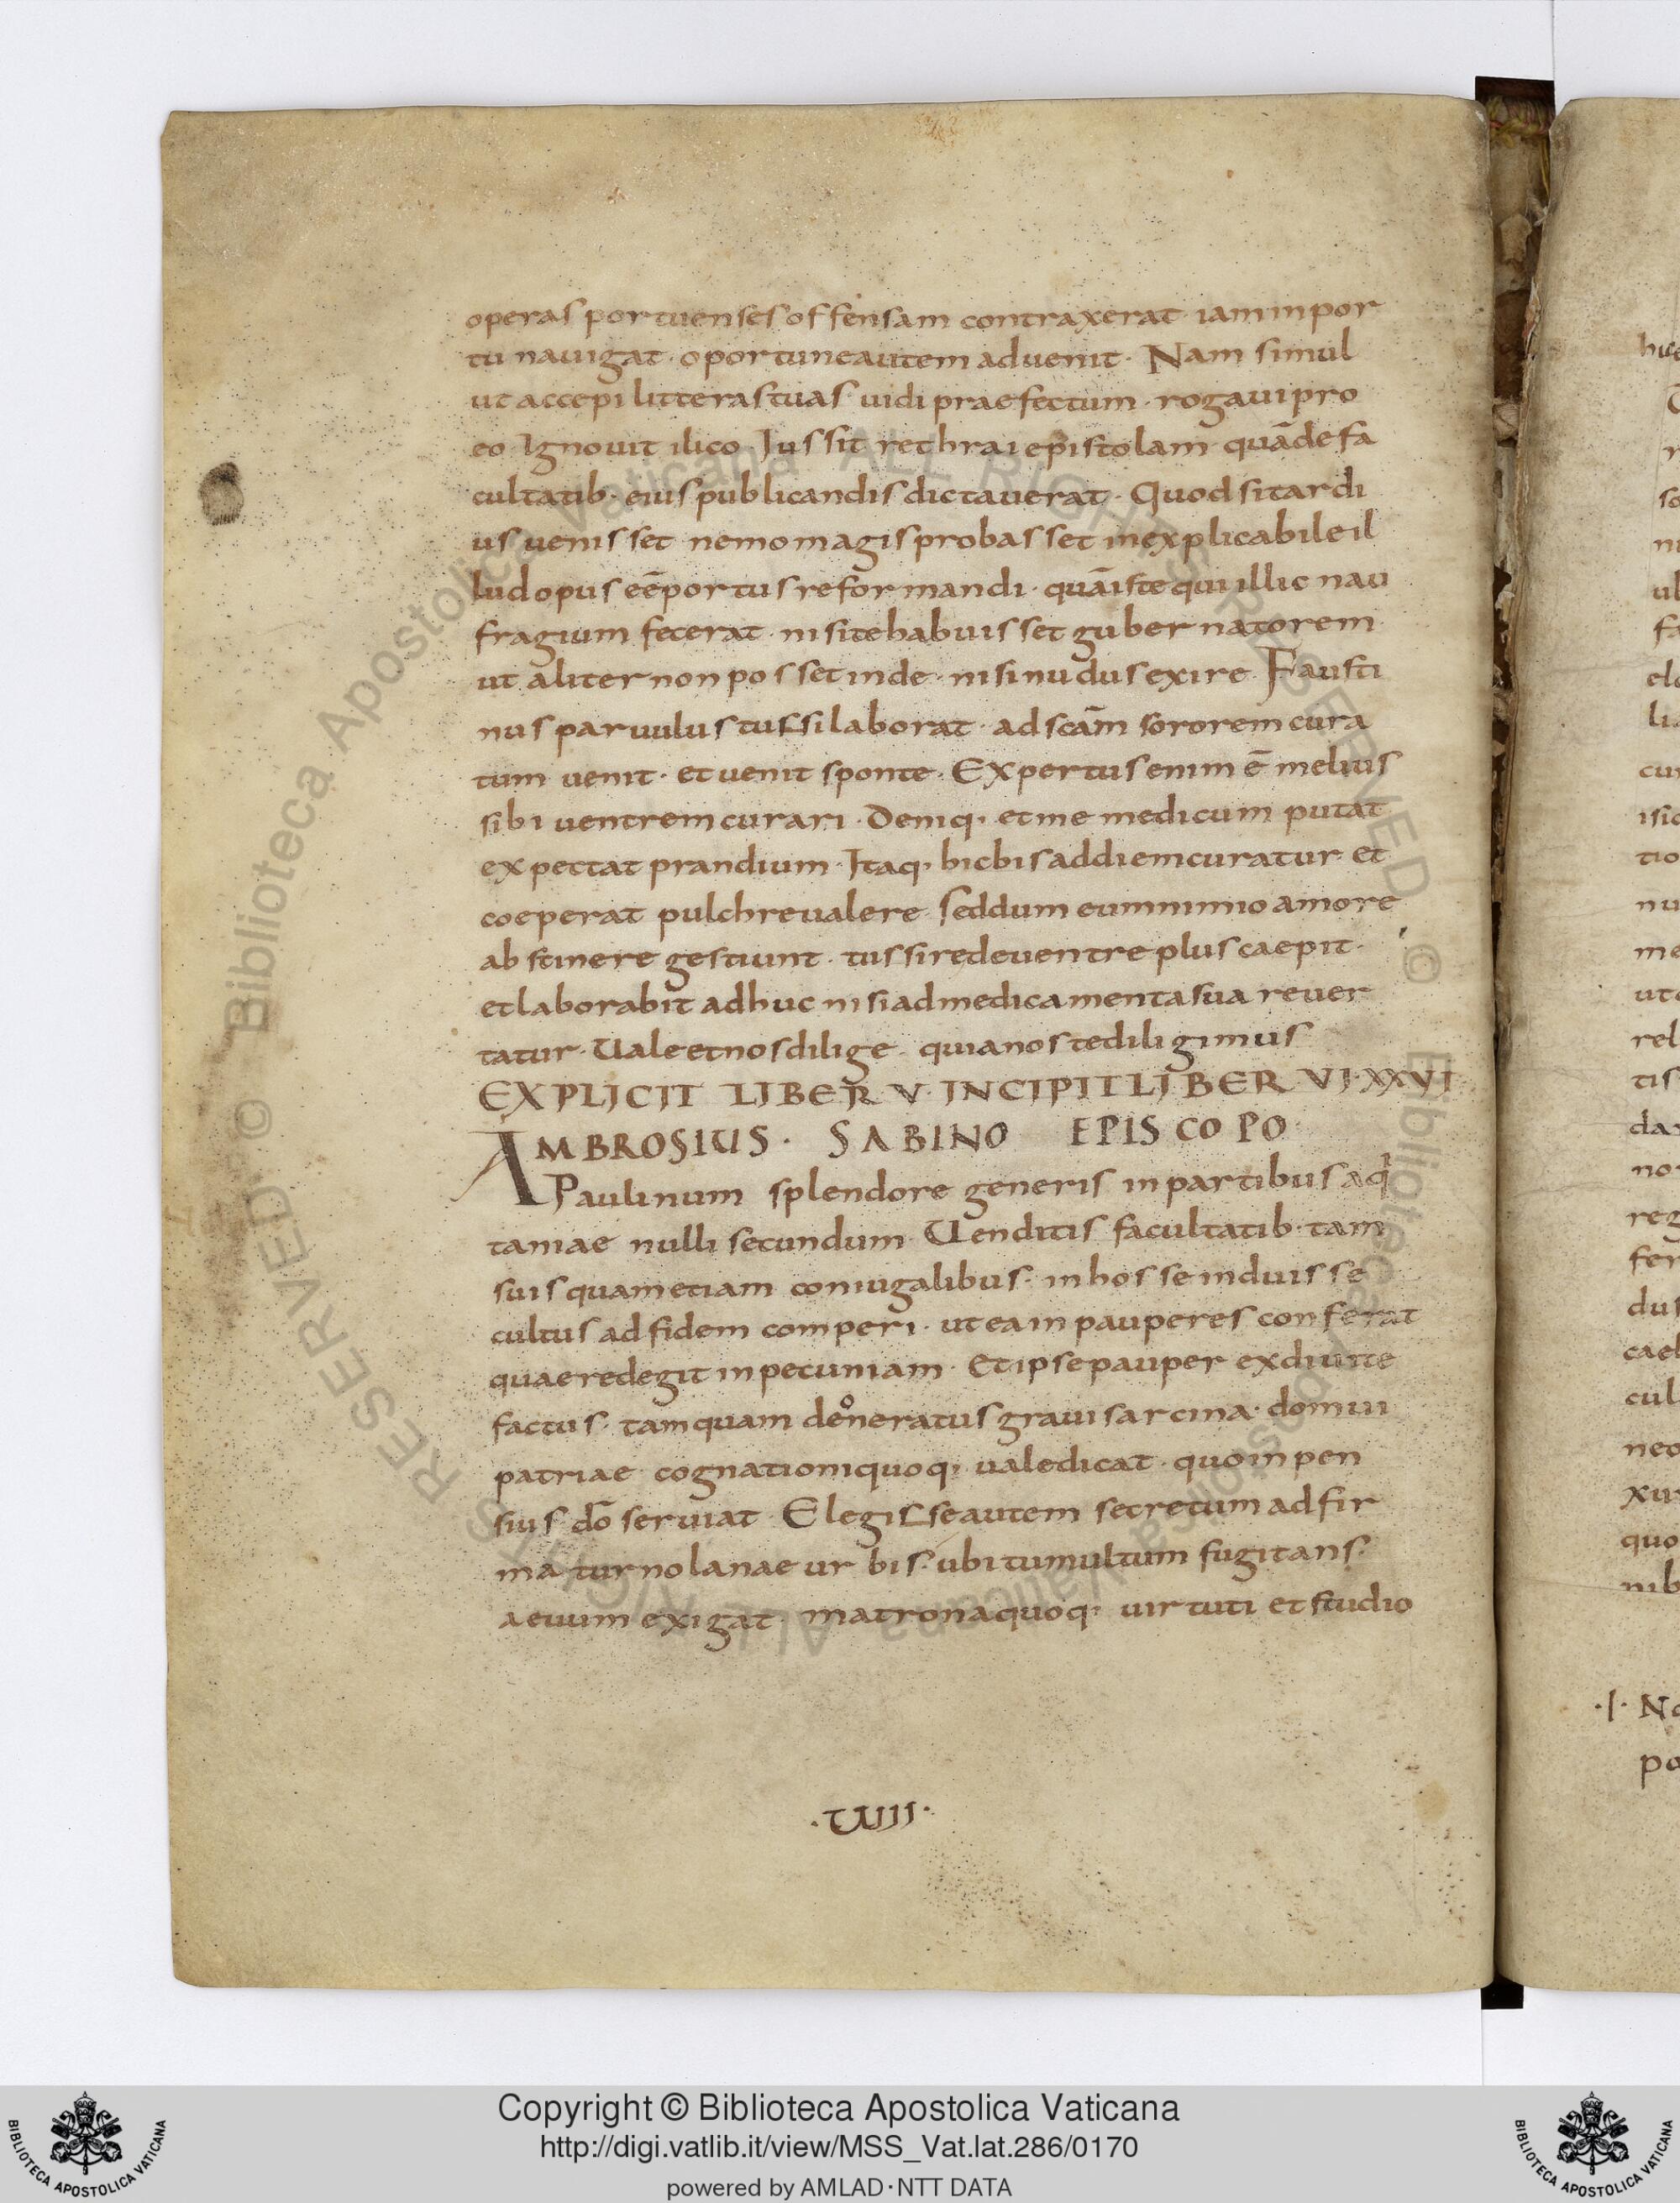 operas portuenses offensam contraxerat iam in por
tu nauigat · oportune autem aduenit · Nam simul
ut accepi litteras tuas · uidi praefectum · rogaui pro
eo · Ignouit ilico · Jussit rethrai epistolam quā de fa
cultatib· eius publicandis dictauerat · Quod si tardi
us uenisset nemo magis probasset inexplicabile il
lud opus eē portus reformandi · quā iste qui illic nau
fragium fecerat · nisi te habuisset gubernatorem
ut aliter non posset inde · nisi nudus exire · Fausti
nus paruulus tussi laborat · ad scām sororem cura
tum uenit · et uenit sponte · Expertus enim ē melius
sibi uentrem curari · Deniq, et me medicum putat
expectat prandium · Itaq, hic bis ad diem curatur et
coeperat pulchre ualere sed dum eum nimio amore
abstinere gestiunt · tussire de uentre plus caepit ·
et laborabit adhuc nisi ad medicamenta sua reuer
tatur · Uale et nos dilige · quia nos te diligimus
EXPLICIT LIBER V · INCIPIT LIBER VI · XXVI
AMBROSIUS · SABINO EPISCOPO
Paulinum splendore generis in partibus aqi
taniae nulli secundum · Uenditis facultatib· tam
suis quam etiam coniugalibus · in hos se induisse
cultus ad fidem comperi · ut ea in pauperes conferat
quae redegit in pecuniam · Et ipse pauper ex diuite
factus · tamquam deoneratus graui sarcina · domui
patriae cognationi quoq, ualedicat · quo inpen
sius dō seruiat · Elegisse autem secretum adfir
matur nolanae urbis · ubi tumultum fugitans ·
aeuum exigat · matrona quoq, uirtuti et studio
· UIII ·
· I · N
po
© Biblioteca Apostolica Vaticana ALL RIGHTS RESERVED © Biblioteca Apostolica Vaticana ALL RIGHTS RESERVED
Copyright © Biblioteca Apostolica Vaticana
http://digi.vatlib.it/view/MSS_Vat.lat.286/0170
powered by AMLAD·NTT DATA
BIBLIOTECA APOSTOLICA VATICANA
BIBLIOTECA APOSTOLICA VATICANA